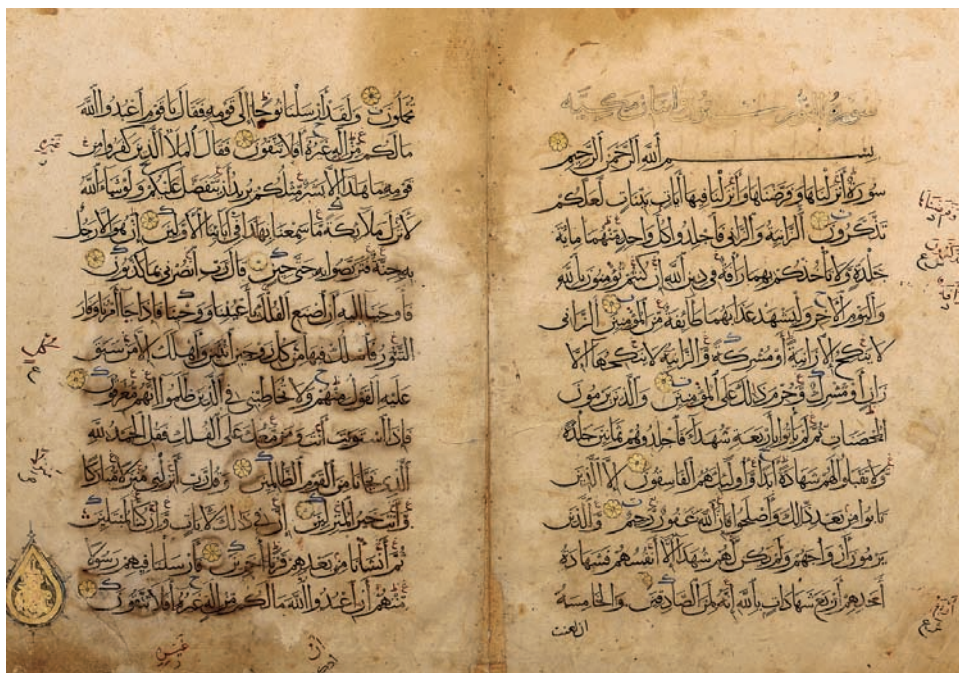 سورة النور
بسم الله الرحمن الرحيم
سُورَةٌ أَنْزَلْنَاهَا وَفَرَضْنَاهَا وَأَنْزَلْنَا فِيهَا آيَاتٍ بَيِّنَاتٍ لَعَلَّكُمْ
تَذَكَّرُونَ الزَّانِيَةُ وَالزَّانِي فَاجْلِدُوا كُلَّ وَاحِدٍ مِنْهُمَا مِائَةَ
جَلْدَةٍ وَلَا تَأْخُذْكُمْ بِهِمَا رَأْفَةٌ فِي دِينِ اللَّهِ إِنْ كُنْتُمْ تُؤْمِنُونَ بِاللَّهِ
وَالْيَوْمِ الْآخِرِ وَلْيَشْهَدْ عَذَابَهُمَا طَائِفَةٌ مِنَ الْمُؤْمِنِينَ الزَّانِي
لَا يَنْكِحُ إِلَّا زَانِيَةً أَوْ مُشْرِكَةً وَالزَّانِيَةُ لَا يَنْكِحُهَا إِلَّا
زَانٍ أَوْ مُشْرِكٌ وَحُرِّمَ ذَالِكَ عَلَى الْمُؤْمِنِينَ وَالَّذِينَ يَرْمُونَ
الْمُحْصَنَاتِ ثُمَّ لَمْ يَأْتُوا بِأَرْبَعَةِ شُهَدَاءَ فَاجْلِدُوهُمْ ثَمَانِينَ جَلْدَةً
وَلَا تَقْبَلُوا لَهُمْ شَهَادَةً أَبَدًا وَأُولَئِكَ هُمُ الْفَاسِقُونَ إِلَّا الَّذِينَ
تَابُوا مِنْ بَعْدِ ذَالِكَ وَأَصْلَحُوا فَإِنَّ اللَّهَ غَفُورٌ رَحِيمٌ وَالَّذِينَ
يَرْمُونَ أَزْوَاجَهُمْ وَلَمْ يَكُنْ لَهُمْ شُهَدَاءُ إِلَّا أَنْفُسُهُمْ فَشَهَادَةُ
أَحَدِهِمْ أَرْبَعُ شَهَادَاتٍ بِاللَّهِ إِنَّهُ لَمِنَ الصَّادِقِينَ وَالْخَامِسَةُ
ان لعنت
تُحْمَلُونَ وَلَقَدْ أَرْسَلْنَا نُوحًا إِلَى قَوْمِهِ فَقَالَ يَا قَوْمِ اعْبُدُوا اللَّهَ
مَا لَكُمْ مِنْ إِلَهٍ غَيْرُهُ أَفَلَا تَتَّقُونَ فَقَالَ الْمَلَأُ الَّذِينَ كَفَرُوا مِنْ
قَوْمِهِ مَا هَذَا إِلَّا بَشَرٌ مِثْلُكُمْ يُرِيدُ أَنْ يَتَفَضَّلَ عَلَيْكُمْ وَلَوْ شَاءَ اللَّهُ
لَأَنْزَلَ مَلَائِكَةً مَا سَمِعْنَا بِهَذَا فِي آبَائِنَا الْأَوَّلِينَ إِنْ هُوَ إِلَّا رَجُلٌ
بِهِ جِنَّةٌ فَتَرَبَّصُوا بِهِ حَتَّى حِينٍ قَالَ رَبِّ انْصُرْنِي بِمَا كَذَّبُونِ
فَأَوْحَيْنَا إِلَيْهِ أَنِ اصْنَعِ الْفُلْكَ بِأَعْيُنِنَا وَوَحْيِنَا فَإِذَا جَاءَ أَمْرُنَا وَفَارَ
التَّنُّورُ فَاسْلُكْ فِيهَا مِنْ كُلٍّ زَوْجَيْنِ اثْنَيْنِ وَأَهْلَكَ إِلَّا مَنْ سَبَقَ
عَلَيْهِ الْقَوْلُ مِنْهُمْ وَلَا تُخَاطِبْنِي فِي الَّذِينَ ظَلَمُوا إِنَّهُمْ مُغْرَقُونَ
فَإِذَا اسْتَوَيْتَ أَنْتَ وَمَنْ مَعَكَ عَلَى الْفُلْكِ فَقُلِ الْحَمْدُ لِلَّهِ
الَّذِي نَجَّانَا مِنَ الْقَوْمِ الظَّالِمِينَ وَقُلْ رَبِّ أَنْزِلْنِي مُنْزَلًا مُبَارَكًا
وَأَنْتَ خَيْرُ الْمُنْزِلِينَ إِنَّ فِي ذَالِكَ لَآيَاتٍ وَإِنْ كُنَّا لَمُبْتَلِينَ
ثُمَّ أَنْشَأْنَا مِنْ بَعْدِهِمْ قَرْنًا آخَرِينَ فَأَرْسَلْنَا فِيهِمْ رَسُولًا
مِنْهُمْ أَنِ اعْبُدُوا اللَّهَ مَا لَكُمْ مِنْ إِلَهٍ غَيْرُهُ أَفَلَا تَتَّقُونَ